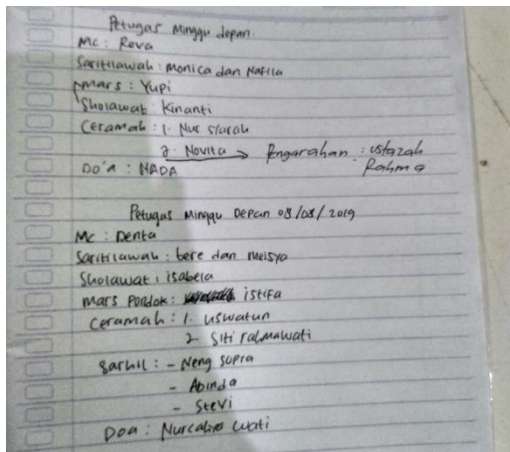 Petugas Minggu depan
MC : Reva
Saritilawah : monica dan Nafila
mars : Yupi
Sholawat : Kinanti
Ceramah : 1. Nur siarah
2. Novita → Pengarahan : ustazah
Rahma
Do'a : NADA
Petugas Minggu Depan 08/08/2019
MC : Denta
Saritilawah : bere dan meisya
Sholawat : isabela
mars Pondok : istifa
Ceramah : 1. uswatun
2. Siti rahmawati
Sarhil : - Neng sopra
- Abinda
- Stevi
Doa : wati